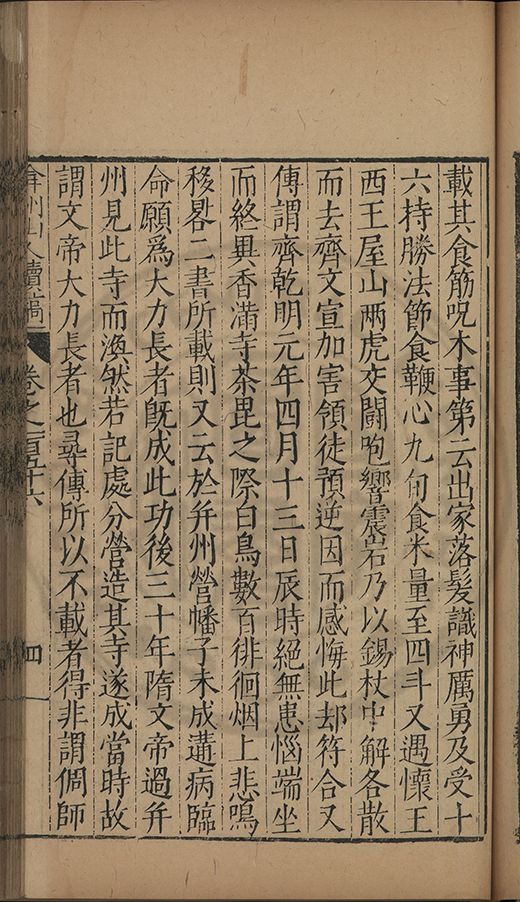 載其食筋呪木事第云出家落髮識神厲勇及受十
六持勝法節食鞭心九旬食米量至四斗又遇懷王
西王屋山兩虎交鬭咆響震岩乃以錫杖中解各散
而去齊文宣加害領徒預逆因而感悔此却符合又
傳謂齊乾明元年四月十三日辰時絕無患惱端坐
而終異香滿寺茶毘之際白鳥數百徘徊烟上悲鳴
移晷二書所載則又云於并州營幡子未成遘病臨
命願爲大力長者旣成此功後三十年隋文帝過并
州見此寺而渙然若記處分營造其寺遂成當時故
謂文帝大力長者也尋傳所以不載者得非謂倜師
弇州山人續稿 卷之一百五十六 四